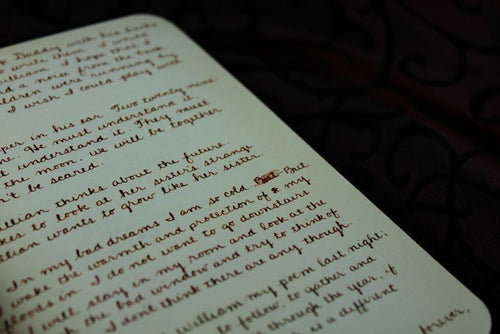 Daddy with his books
to write them. I would
William. I hope that I
a noise from the
children is running by
I wish I could play with
per in his ear. Two twenty nine
me. He must understand it
understand it. They must
the moon. we will be together
n't be scared.
illian thinks about the future.
likes to look at her sister's strange
illian wants to grow like her sister.
In my bad dreams I am so cold. But
I woke the warmth and protection of my
floods in. I do not want to go downstairs
I will stay in my room and look at the
the bad window and try to think of
I don't think there are any though.
William my poem last night;
to follow, to gather and
through the year, if
a different
prayer,